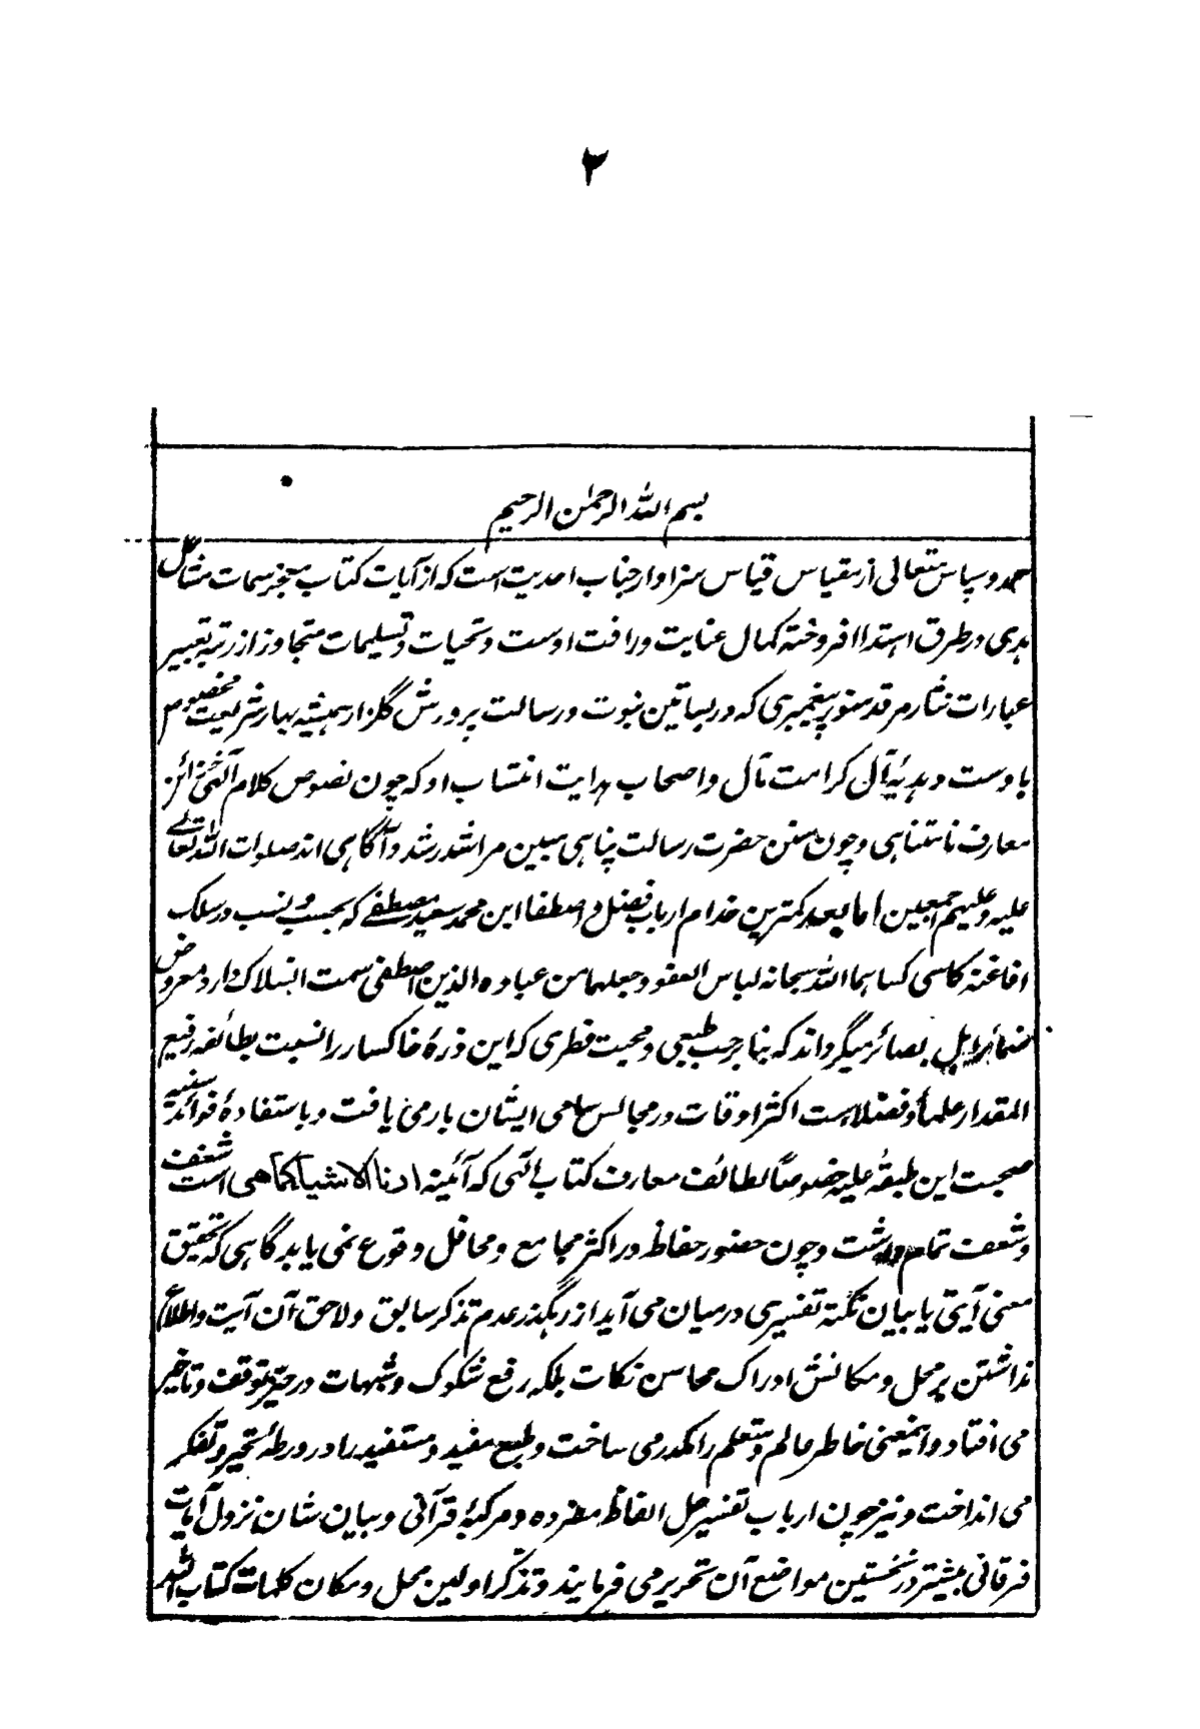 ۲
بسم الله الرحمن الرحیم
حمد و سپاس متعالی از مقیاس قیاس سزاوار جناب احدیت است که از آیات کتاب معجز سمات مشاعل
هدی در طرق اهتدا افروخته کمال عنایت و رافت اوست و تحیات و تسلیمات متجاوز از رتبه تعبیر
عبارات نثار مرقد منور پیغمبری که در بساتین نبوت و رسالت پرورش گلزار همیشه بهار شریعت مخصوص
باوست و هدیهٔ آل کرامت مآل و اصحاب هدایت انتساب او که چون نصوص کلام آلهی خزائن
معارف نامتناهی و چون سنن حضرت رسالت پناهی مبین مراشد رشد و آگاهی اند صلوات الله تعالے
علیه و علیهم اجمعین اما بعد کمترین خدام ارباب فضل و اصطفا ابن محمد سعید مصطفے که بحسب و نسب در سلک
افاغنه کاسی کساهما الله سبحانه لباس العفو و جعلهما من عباده الذین اصطفی سمت انسلاک دارد معروض
ضمائر اهل بصائر میگرداند که بنا بر حب طبیعی و محبت فطری که این ذرهٔ خاکسار را نسبت بطائفه رفیع
المقدار علماء و فضلا ست اکثر اوقات در مجالس سامی ایشان بار می یافت و باستفادهٔ فوائد سنیه
صحبت این طبقهٔ علیه خصوصاً لطائف معارف کتاب الٰهی که آئینه ارنا الاشیاء کماهی است شغف
و شعف تمام داشت و چون حضور حفاظ در اکثر مجامع و محافل وقوع نمی یابد گاهی که تحقیق
معنی آیتی یا بیان نکته تفسیری در میان می آید از رهگذر عدم تذکر سابق و لاحق آن آیت و اطلاع
نداشتن بر محل و مکانش ادراک محاسن نکات بلکه رفع شکوک و شبهات در حیز توقف و تاخیر
می افتاد و اینمعنی خاطر عالم و متعلم را مکدر می ساخت و طبع مفید و مستفید را در ورطهٔ تحیر و تفکر
می انداخت و نیز چون ارباب تفسیر حل الفاظ مفرده و مرکبهٔ قرآنی و بیان شان نزول آیات
فرقانی بیشتر در نخستین مواضع آن تحریر می فرمایند و تذکر اولین محل و مکان کلمات کتاب الله